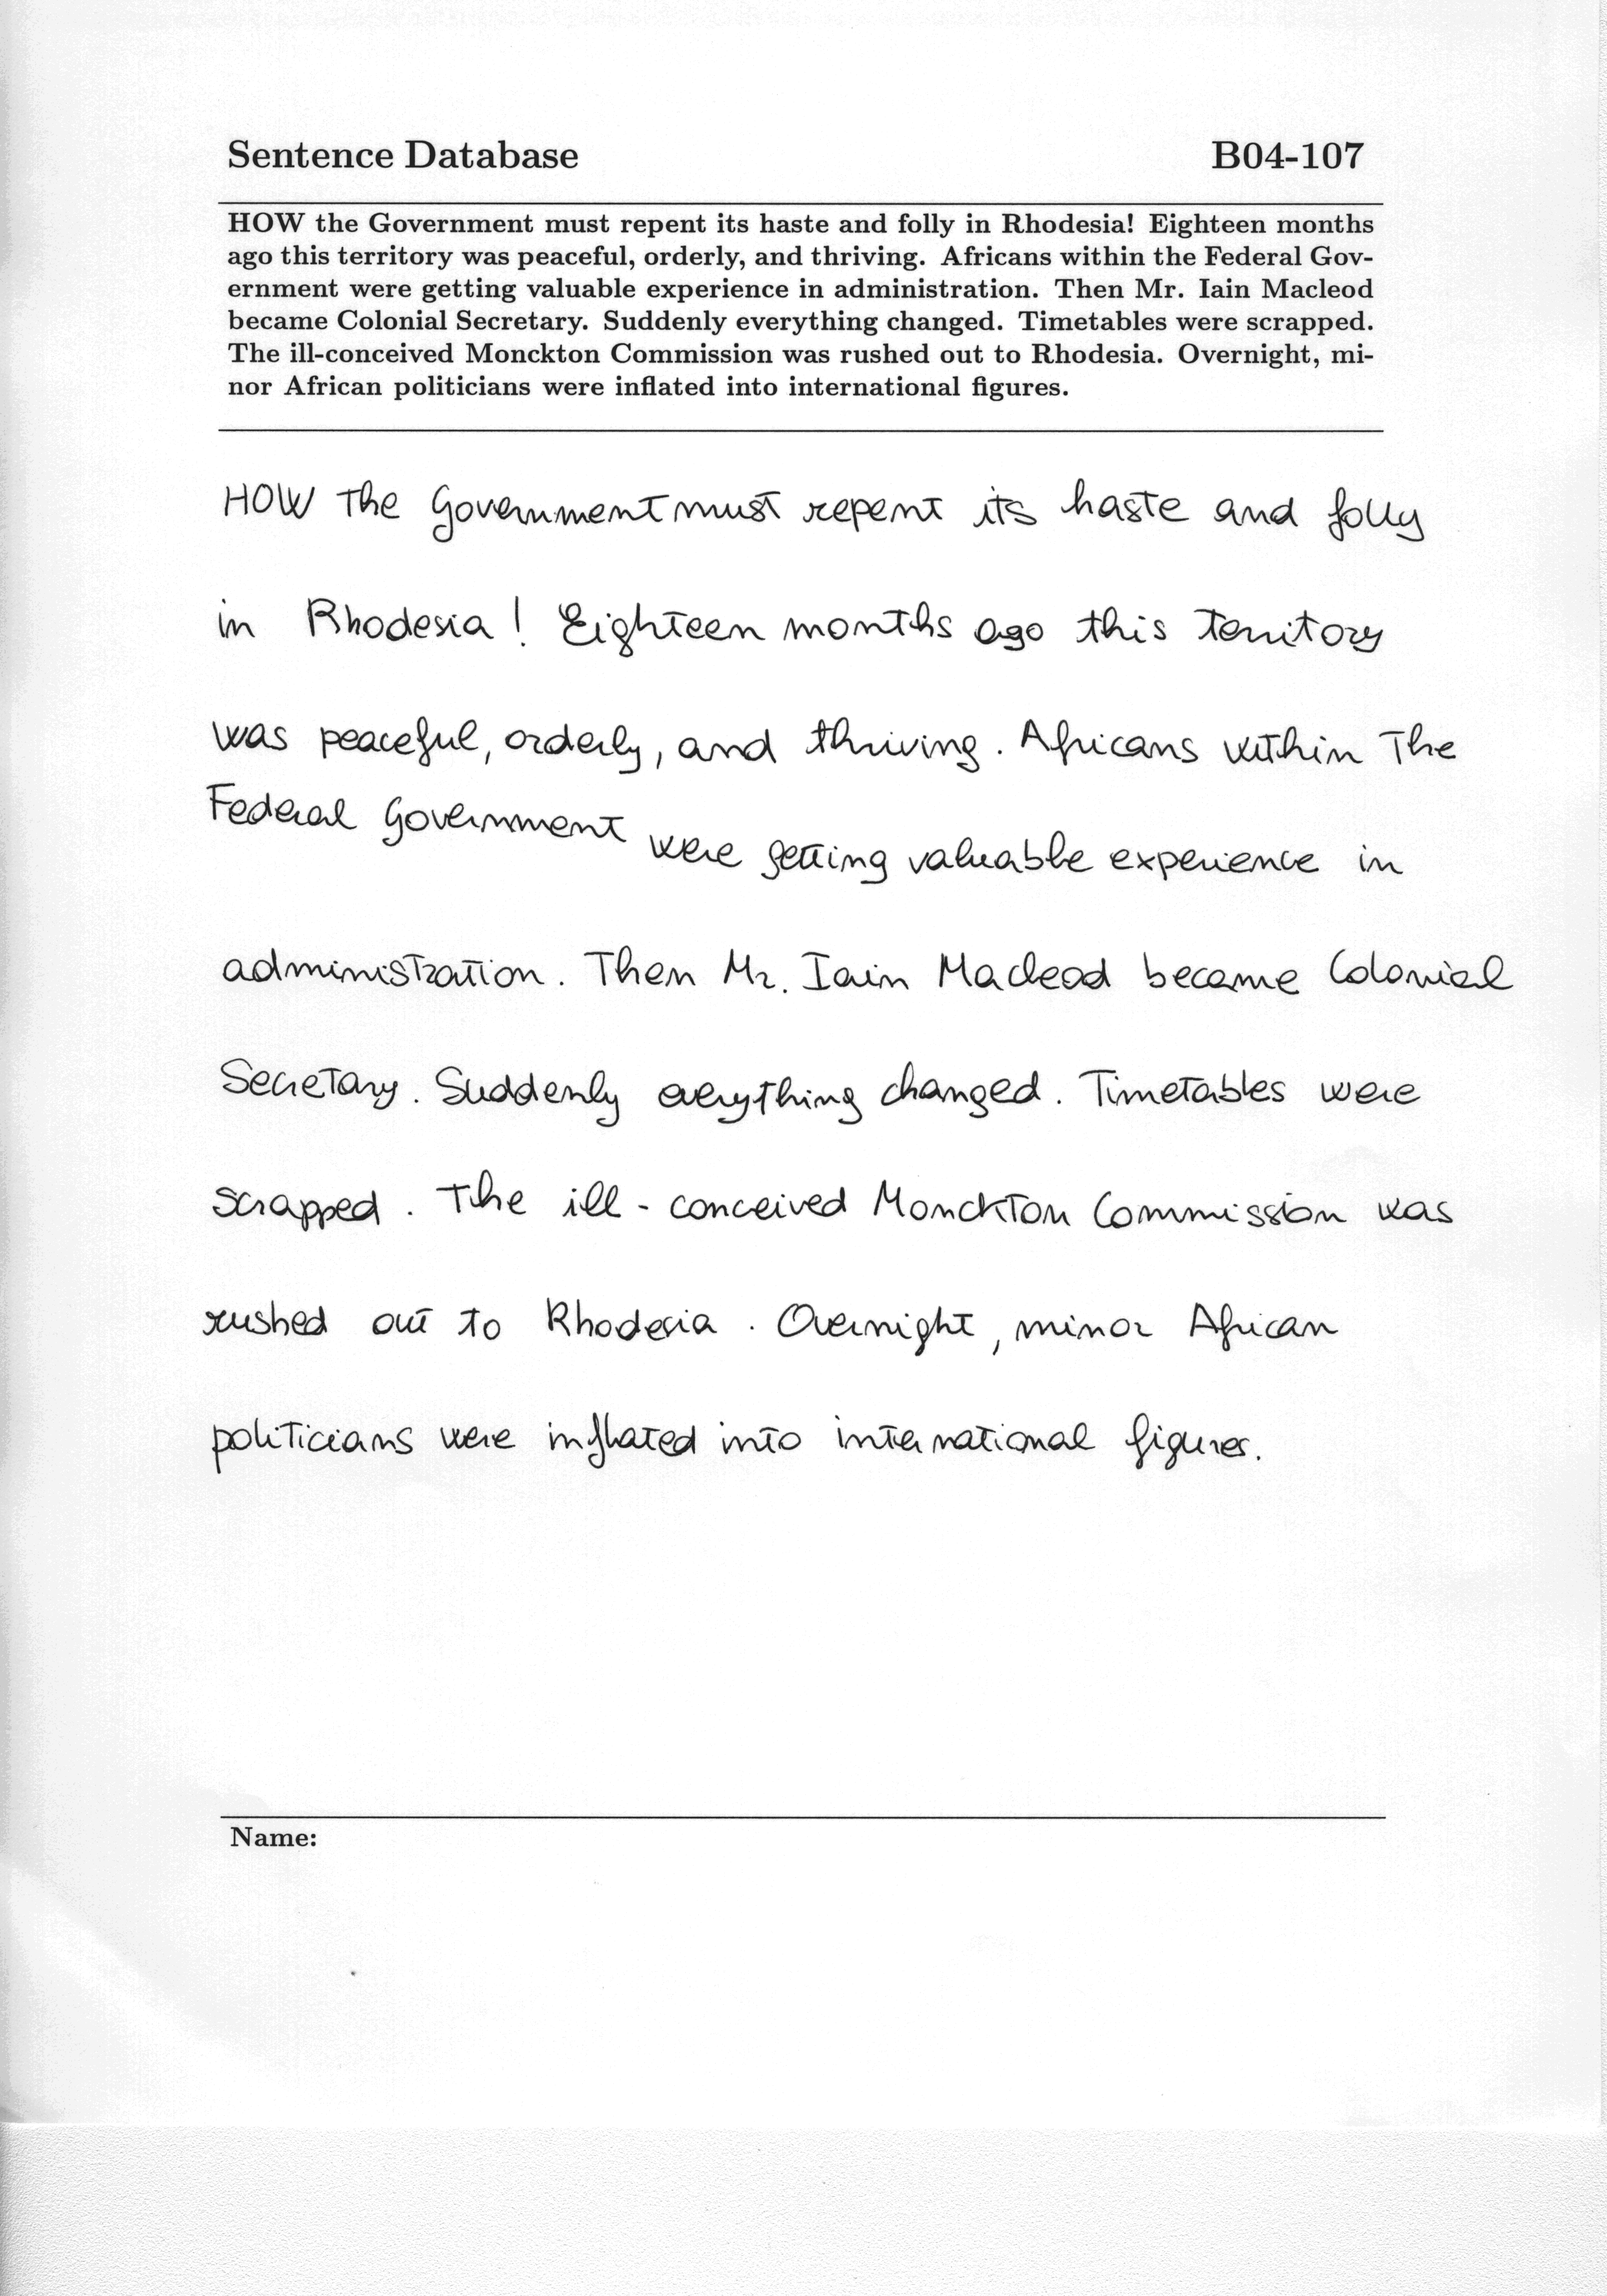 Sentence Database B04-107
HOW the Government must repent its haste and folly in Rhodesia! Eighteen months
ago this territory was peaceful, orderly, and thriving. Africans within the Federal Gov-
ernment were getting valuable experience in administration. Then Mr. Iain Macleod
became Colonial Secretary. Suddenly everything changed. Timetables were scrapped.
The ill-conceived Monckton Commission was rushed out to Rhodesia. Overnight, mi-
nor African politicians were inflated into international figures.
HOW the Government must repent its haste and folly
in Rhodesia! Eighteen months ago this territory
was peaceful, orderly, and thriving. Africans within the
Federal Government were getting valuable experience in
administration. Then Mr. Iain Macleod became Colonial
Secretary. Suddenly everything changed. Timetables were
scrapped. The ill-conceived Monckton Commission was
rushed out to Rhodesia. Overnight, minor African
politicians were inflated into international figures.
Name: